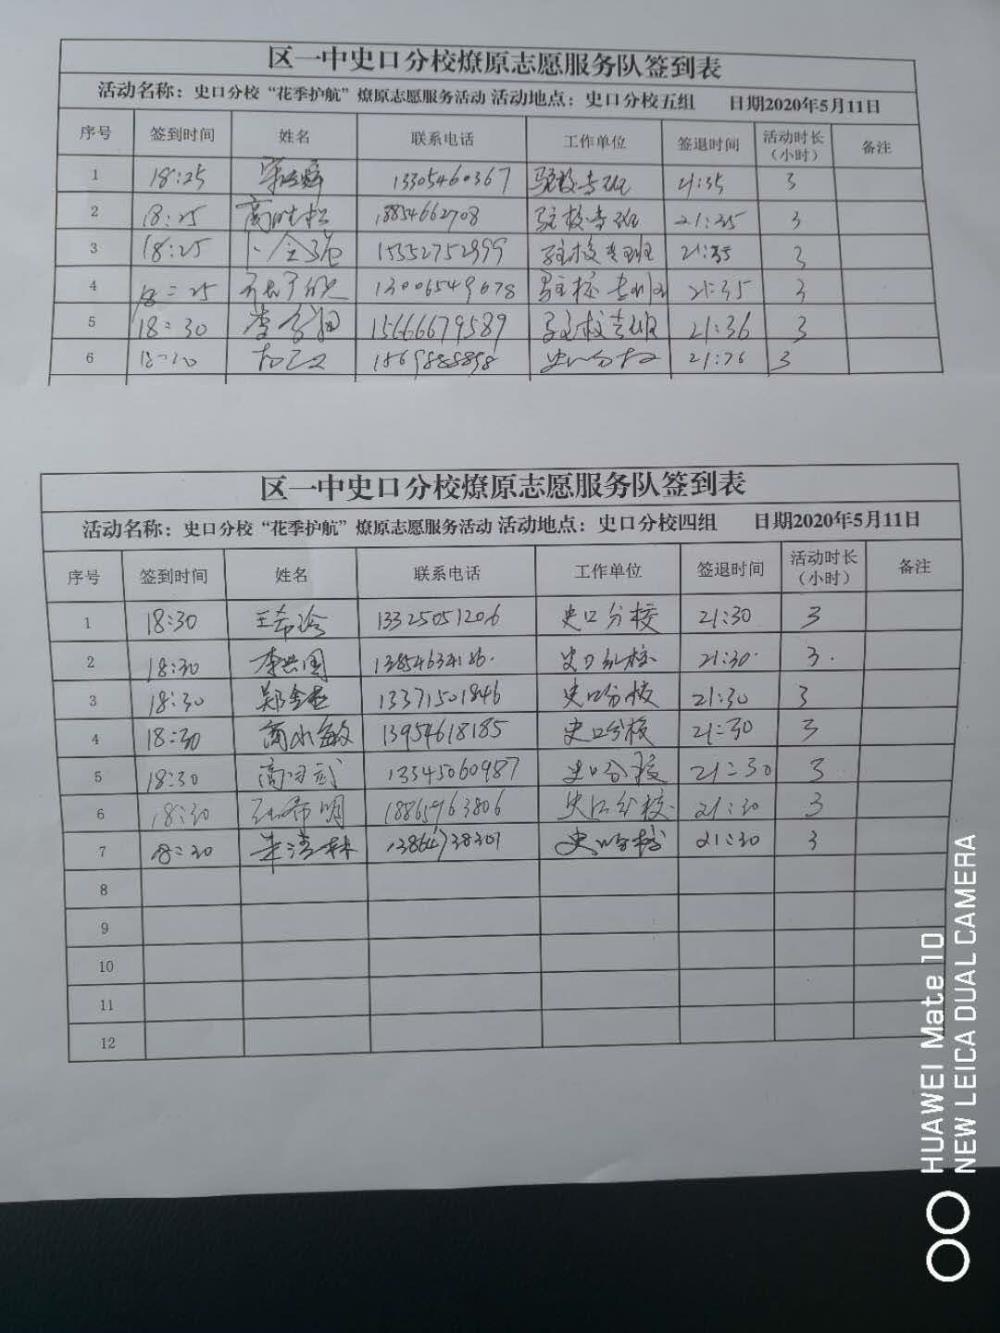 区一中史口分校燎原志愿服务队签到表
活动名称：史口分校“花季护航”燎原志愿服务活动 活动地点：史口分校五组 日期2020年5月11日
序号 签到时间 姓名 联系电话 工作单位 签退时间 活动时长（小时） 备注
1 18:25 13305460367 驻校专班 21:35 3
2 18:25 18854662708 驻校专班 21:35 3
3 18:25 卜全强 15552752999 驻校专班 21:35 3
4 18:25 13006549678 驻校专班 21:35 3
5 18:30 15666679589 驻校专班 21:36 3
6 史口分校 3
区一中史口分校燎原志愿服务队签到表
活动名称：史口分校“花季护航”燎原志愿服务活动 活动地点：史口分校四组 日期2020年5月11日
序号 签到时间 姓名 联系电话 工作单位 签退时间 活动时长（小时） 备注
1 18:30 王希玲 13325051206 史口分校 21:30 3
2 18:30 李兴国 史口分校 21:30 3
3 18:30 13371501846 史口分校 21:30 3
4 18:30 商永敏 13954618185 史口分校 21:30 3
5 18:30 13345060987 史口分校 21:30 3
6 18:30 史口分校 21:30 3
7 18:30 朱清林 史口分校 21:30 3
8
9
10
11
12
HUAWEI Mate 10
NEW LEICA DUAL CAMERA